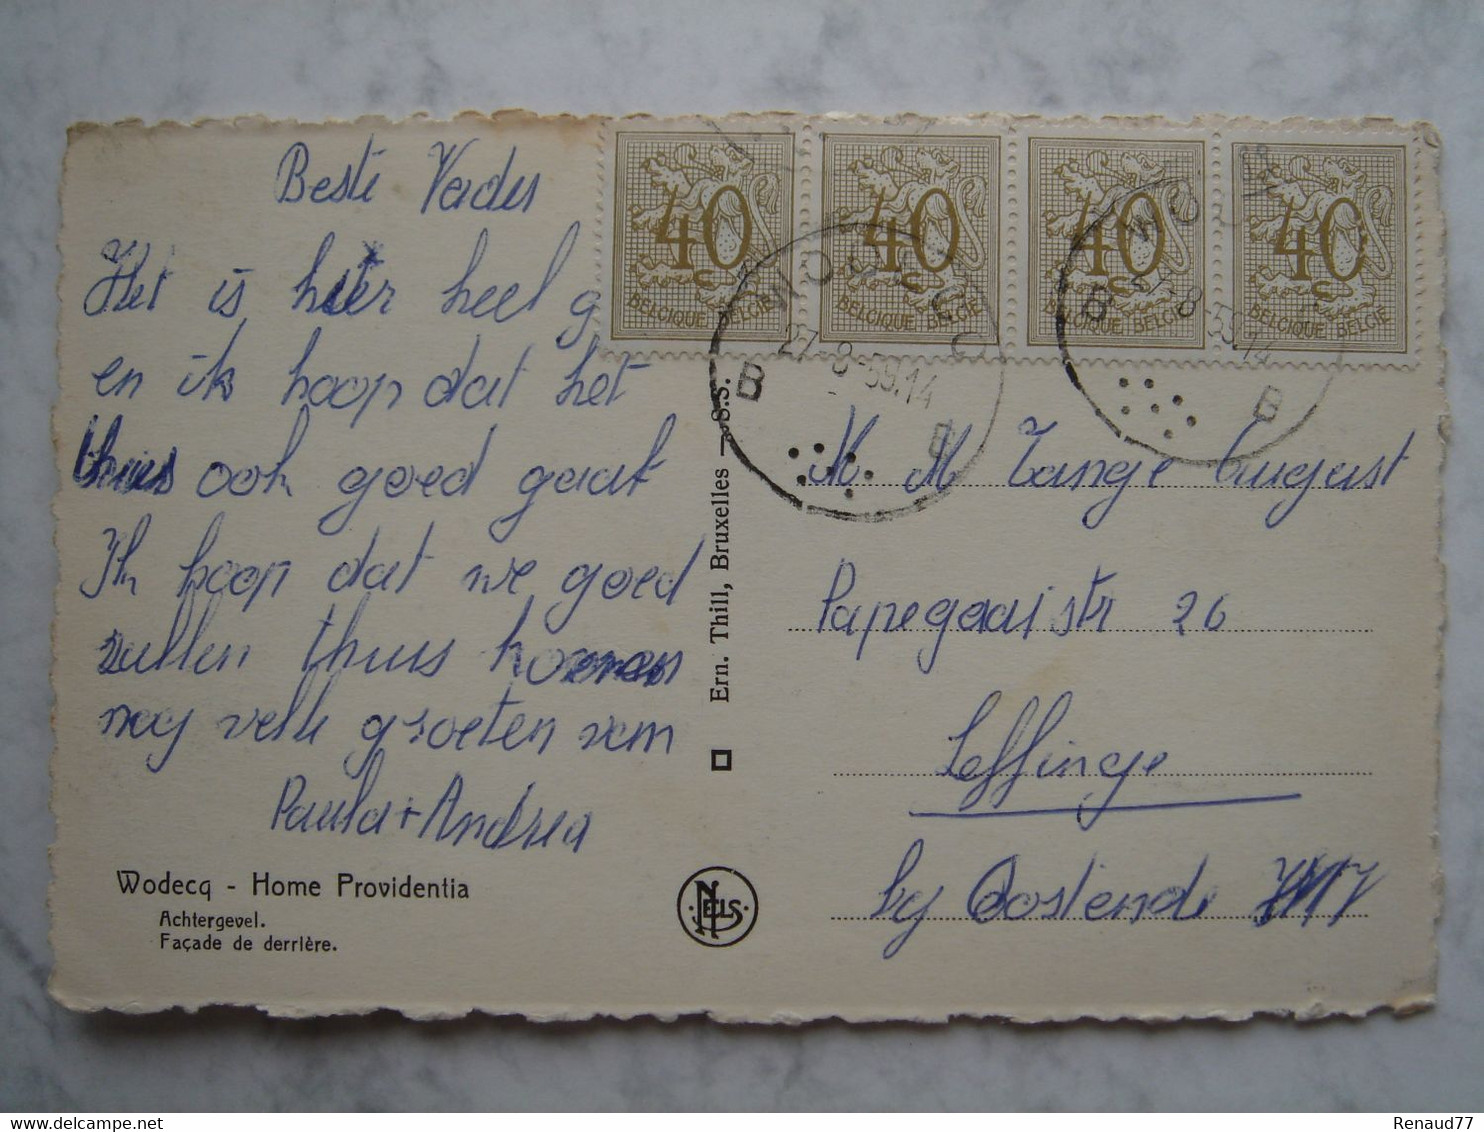 Beste Vader
Het is hier heel g
en ik hoop dat het
thuis ook goed gaat
Ik hoop dat we goed
zullen thuis komen
nog vele groeten van
Paula + Andrea
Wodecq - Home Providentia
Achtergevel.
Façade de derrière.
NELS
Ern. Thill, Bruxelles — S.S.
40
BELGIQUE BELGIË
40
BELGIQUE BELGIË
40
BELGIQUE BELGIË
40
BELGIQUE BELGIË
WODECQ
27-8-59.14
B B
WO
-8-59.14
B B
M M Tange August
Papegaaistr 26
Leffinge
by Oostende
Renaud77